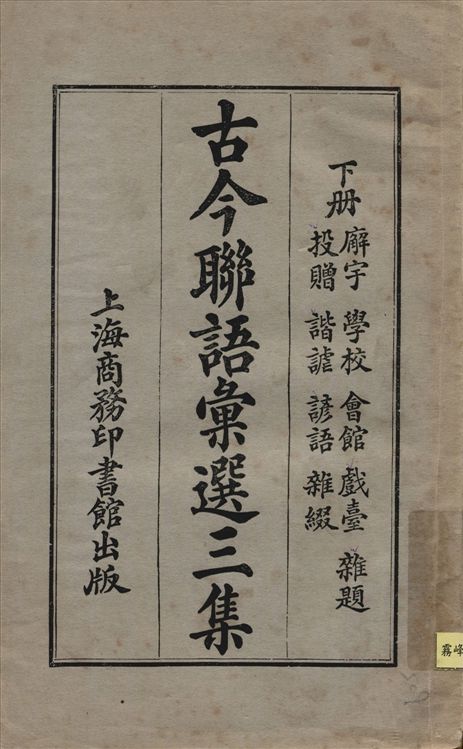 下册
廨宇 學校 會館 戲臺 雜題
投贈 諧謔 諺語 雜綴
古今聯語彙選三集
上海商務印書館出版
霧峰